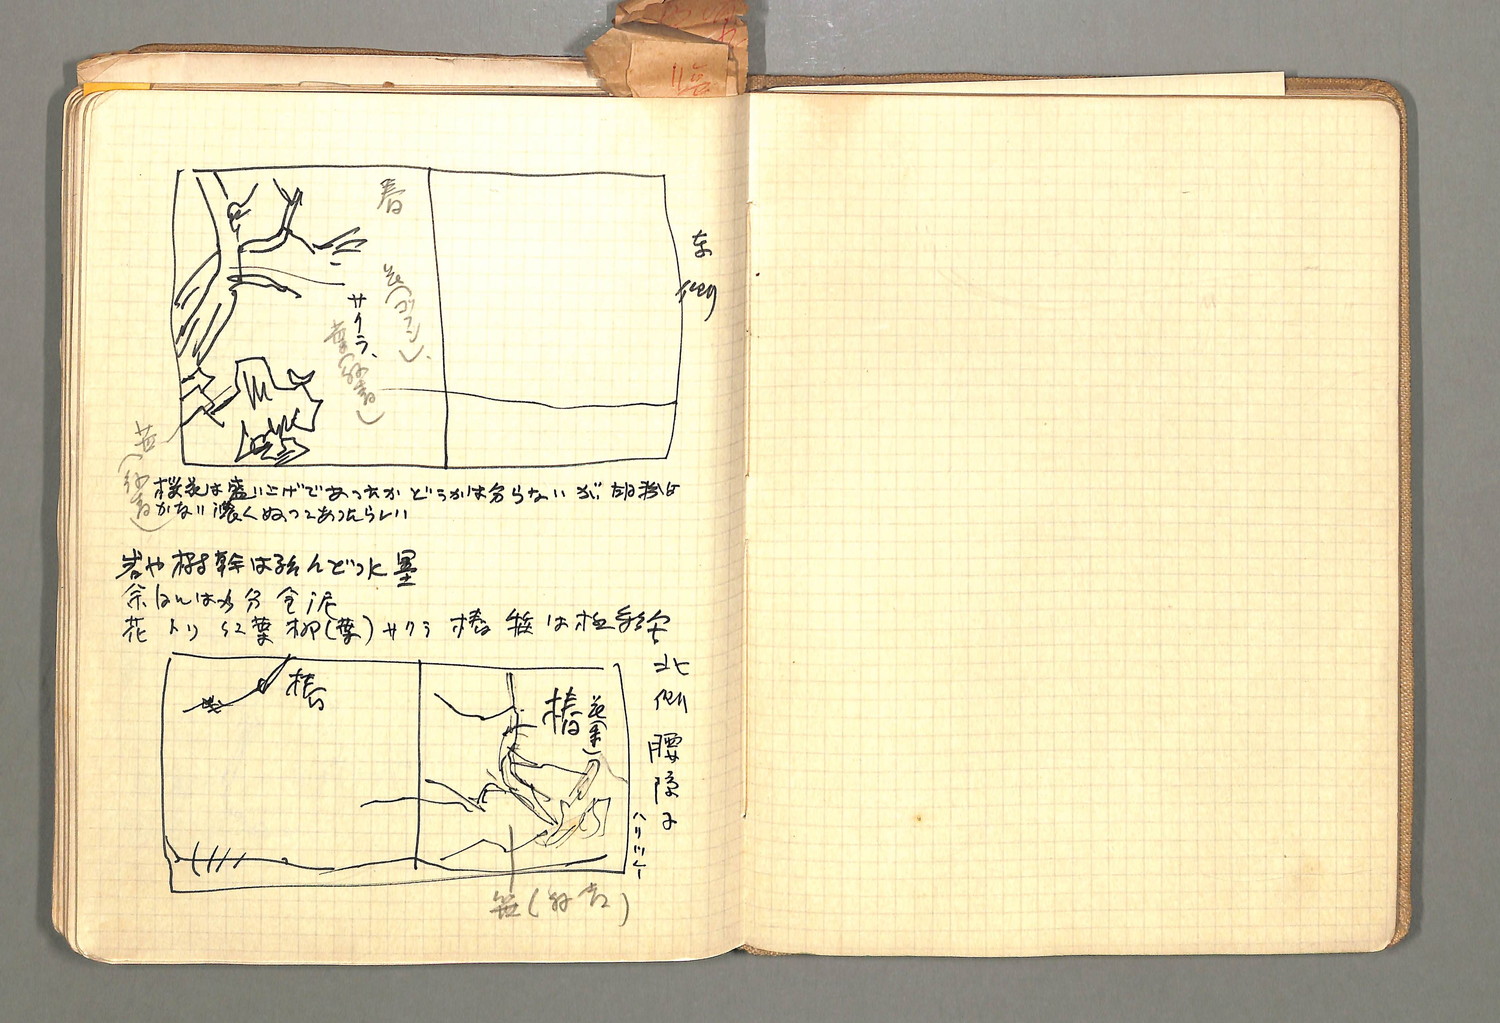 春
花(ゴフン)、
サクラ、
葉(緑青)
東側
苔(緑青)
桜花は盛り上げであったかどうかは分らないが 胡粉は
かない濃くぬってあったらしい
岩や樹幹は殆んど水墨
金泥
花 トリ 紅葉 柳(葉) サクラ 椿 は極彩
北側 腰障子
ハリツケ
椿
椿
花(朱)
笹(緑青)